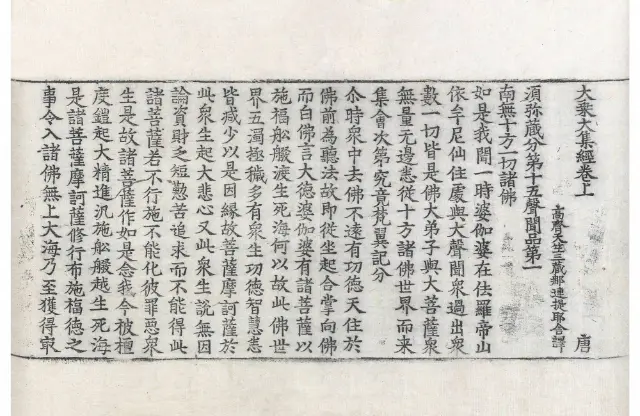 大乘大集經卷上 唐
高齊天竺三藏那連提耶舍譯
須弥藏分第十五聲聞品第一
南無十方一切諸佛
如是我聞一時婆伽婆在佉羅帝山
依牟尼仙住處與大聲聞衆過出衆
數一切皆是佛大弟子與大菩薩衆
無量无邊悉從十方諸佛世界而来
集會次第究竟梵異記分
尒時衆中去佛不遠有功德天住於
佛前為聽法故即從坐起合掌向佛
而白佛言大德婆伽婆有諸菩薩以
施福舩艥渡生死海何以故此佛世
界五濁極穢多有衆生功德智慧悉
皆减少以是因縁故菩薩摩訶薩於
此衆生起大悲心又此衆生説無因
論資財乏短懃苦追求而不能得此
諸菩薩若不行施不能化彼罪惡衆
生是故諸菩薩作如是念我今被檀
度鎧起大精進汎施舩艥越生死海
是諸菩薩摩訶薩修行布施福德之
事令入諸佛無上大海乃至獲得㝡